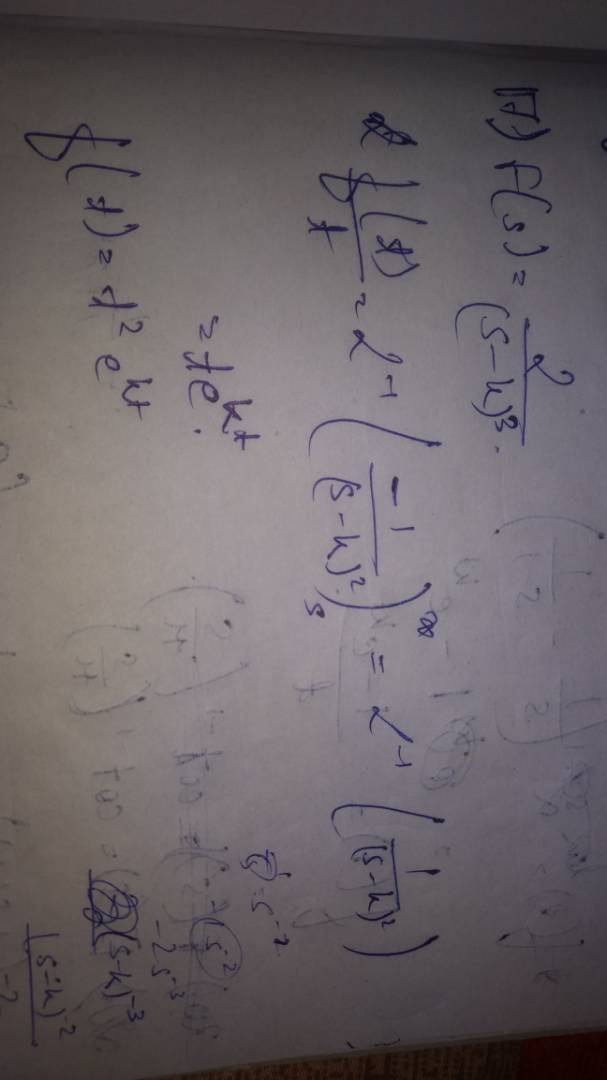 17) F(s) = 2/(s-k)³.
f(t)/t = L⁻¹ (-1/(s-k)²)ₛ^∞ = L⁻¹ (1/(s-k)²)
= te^kt.
f(t) = t² e^kt
s⁻²
s⁻²
-2s⁻³
(s-k)⁻³
(s-k)⁻²